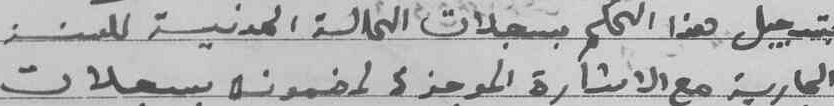 بتسجيل هذا الحكم بسجلات الحالة المدنية للسنة
الجارية مع الاشارة الموجزة لمضمونه بسجلات